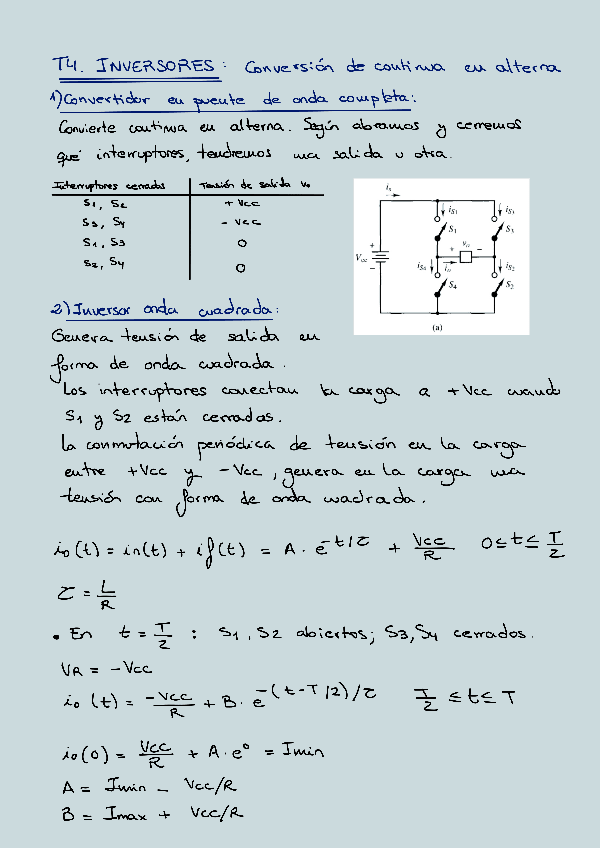 T4. INVERSORES: Conversión de continua en alterna
1) Convertidor en puente de onda completa:
Convierte continua en alterna. Según abramos y cerremos
qué interruptores, tendremos una salida u otra.
Interruptores cerrados Tensión de salida Vo
S1, S2 + Vcc
S3, S4 - Vcc
S1, S3 0
S2, S4 0
is
iS1 iS3
S1 S3
Vcc + − + vo −
iS4 io iS2
S4 S2
(a)
2) Inversor onda cuadrada:
Genera tensión de salida en
forma de onda cuadrada.
Los interruptores conectan la carga a +Vcc cuando
S1 y S2 están cerradas.
La conmutación periódica de tensión en la carga
entre +Vcc y -Vcc, genera en la carga una
tensión con forma de onda cuadrada.
io(t) = in(t) + if(t) = A · e^-t/τ + Vcc/R 0≤t≤ T/2
τ = L/R
• En t = T/2 : S1, S2 abiertos; S3, S4 cerrados.
VR = -Vcc
io (t) = -Vcc/R + B · e^-(t-T/2)/τ T/2 ≤t≤ T
io(0) = Vcc/R + A·e^0 = Imin
A = Imin - Vcc/R
B = Imax + Vcc/R